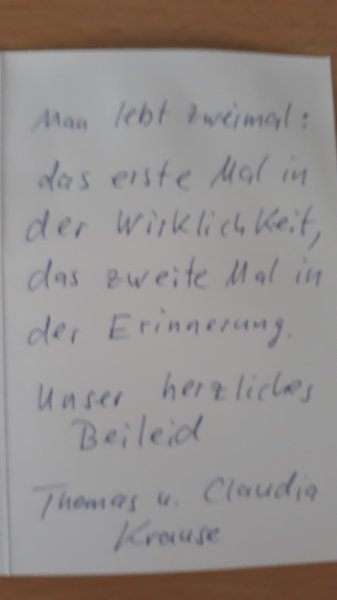 Man lebt zweimal:
das erste Mal in
der Wirklichkeit,
das zweite Mal in
der Erinnerung.
Unser herzliches
Beileid
Thomas u. Claudia
Krause